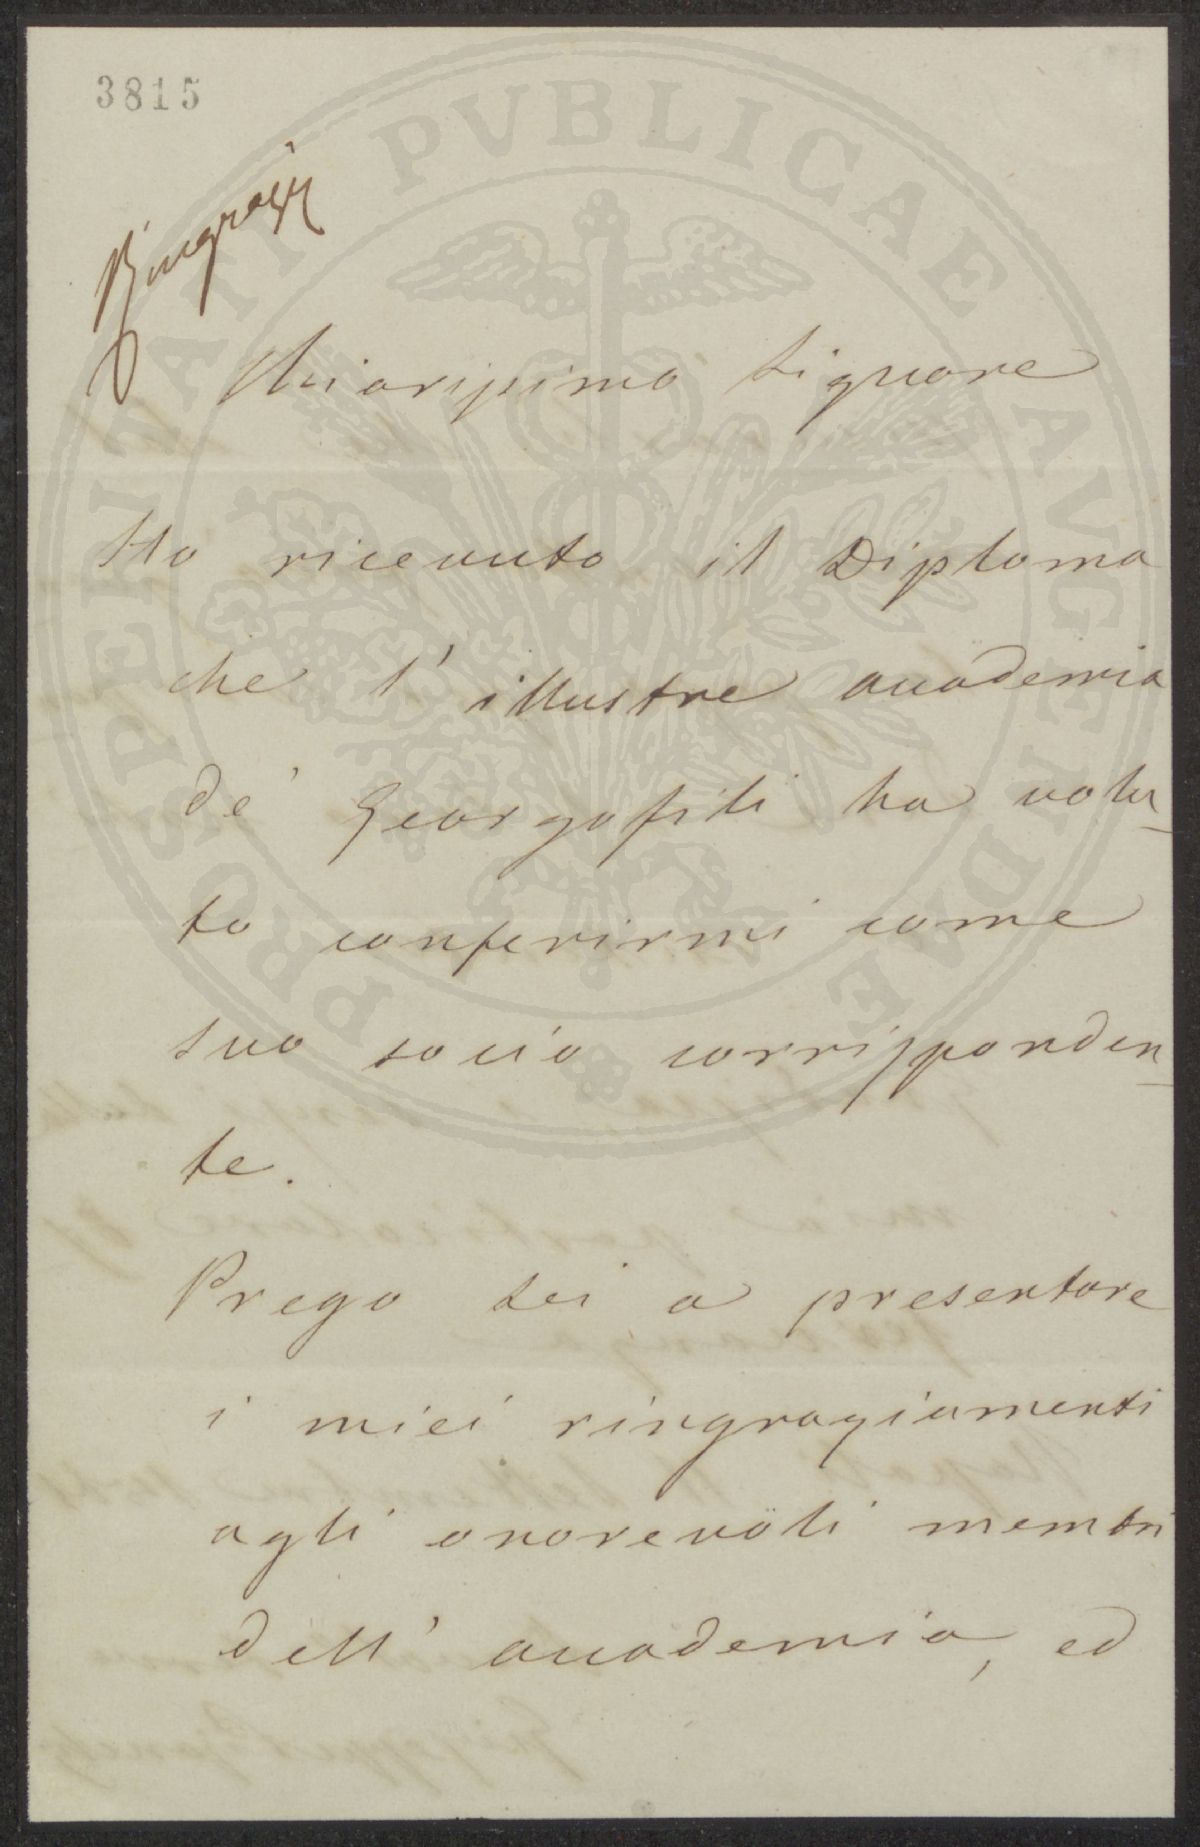 3815
PROSPERITATI PVBLICAE AVGENDAE
Ringrazj
Chiarissimo Signore
Ho ricevuto il Diploma
che l'illustre accademia
de' Georgofili ha volu_
to conferirmi come
suo socio corrisponden_
te.
Prego Lei a presentare
i miei ringraziamenti
agli onorevoli membri
dell'accademia, ed